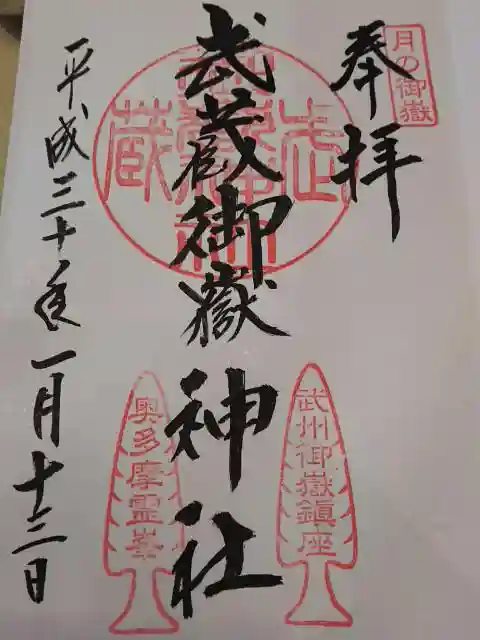 月の御嶽
奉拝
武州御嶽鎮座
武蔵御嶽神社
奥多摩霊峯
平成三十年一月十三日